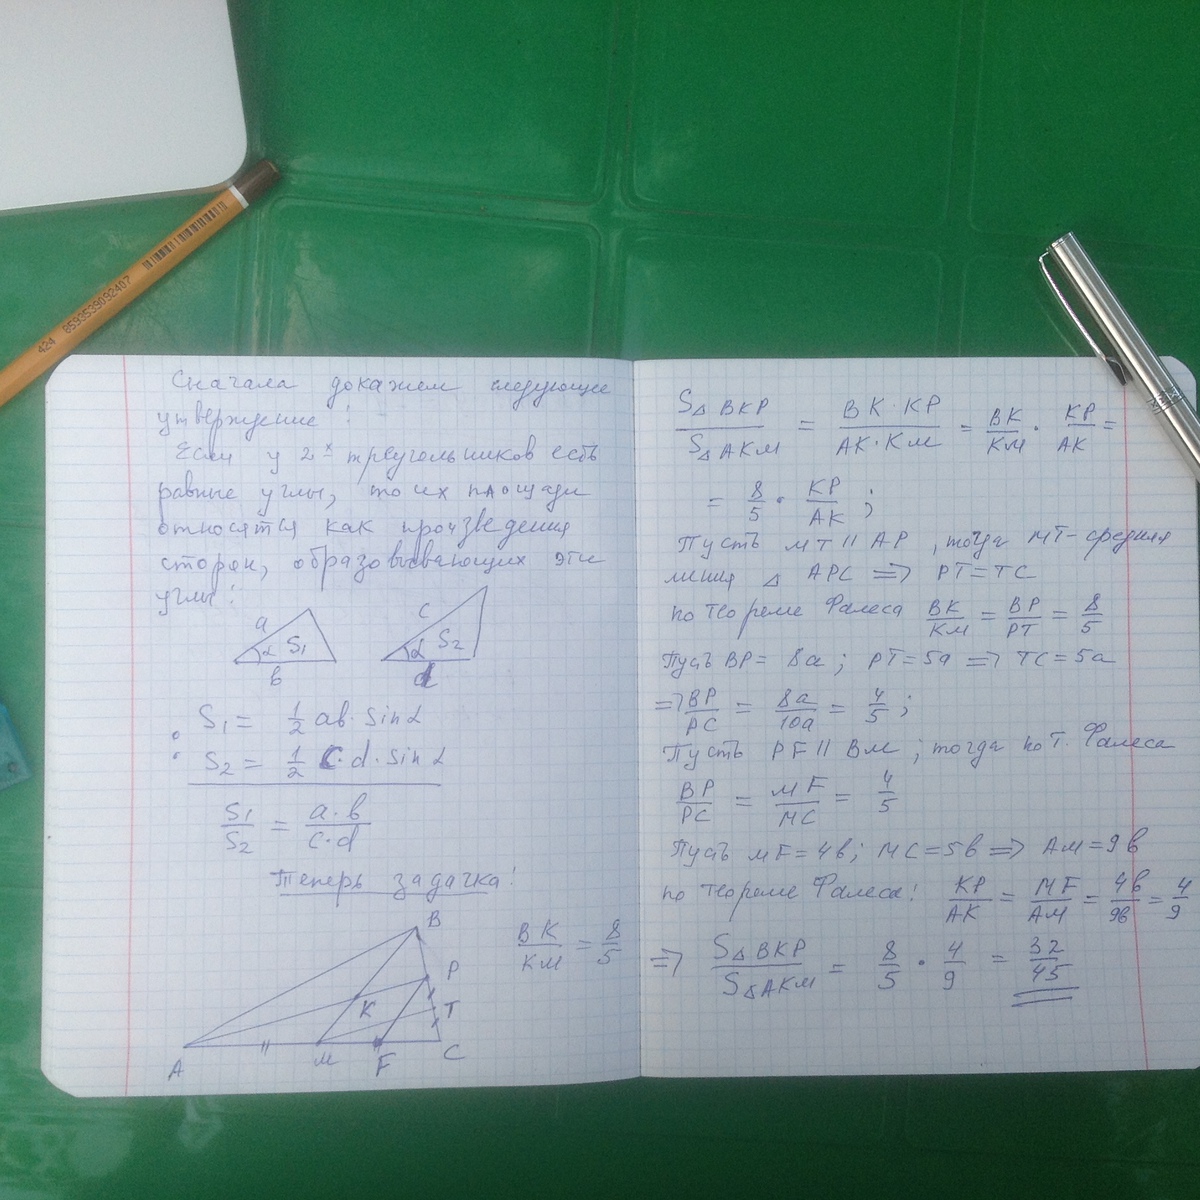 424 8593539092407
Сначала докажем следующее
утверждение!
Если у 2х треугольников есть
равные углы, то их площади
относятся как произведения
сторон, образовывающих эти
углы!
a α S₁ b
c α S₂ d
S₁ = 1/2 ab · sin α
: S₂ = 1/2 c · d · sin α
S₁/S₂ = a · b / c · d
Теперь задачка!
BK/KM = 8/5
B
P
K T
A M F C
S△BKP / S△AKM = BK · KP / AK · KM = BK/KM · KP/AK =
= 8/5 · KP/AK ;
Пусть MT || AP , тогда MT - средняя
линия △ APC => PT = TC
по теореме Фалеса BK/KM = BP/PT = 8/5
Пусть BP = 8a ; PT = 5a => TC = 5a
=> BP/PC = 8a/10a = 4/5 ;
Пусть PF || BM ; тогда по т. Фалеса
BP/PC = MF/MC = 4/5
Пусть MF = 4b ; MC = 5b => AM = 9b
по теореме Фалеса! KP/AK = MF/AM = 4b/9b = 4/9
=> S△BKP / S△AKM = 8/5 · 4/9 = 32/45